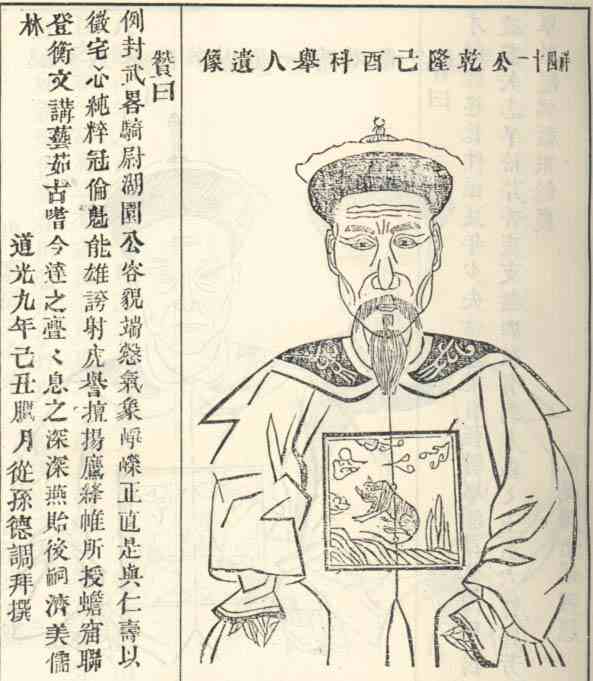 祥四十一公乾隆己酉科舉人遺像
贊曰
例封武畧騎尉湖園公容貌端慤氣象崢嶸正直是與仁壽以
徵宅心純粹冠倫魁能雄誇射虎譽擅揚鷹絳帷所授蟾窟聯
登衡文講藝茹古嗜今達之亹〻息之深深燕貽後嗣濟美儒
林 道光九年己丑臘月從孫德調拜撰